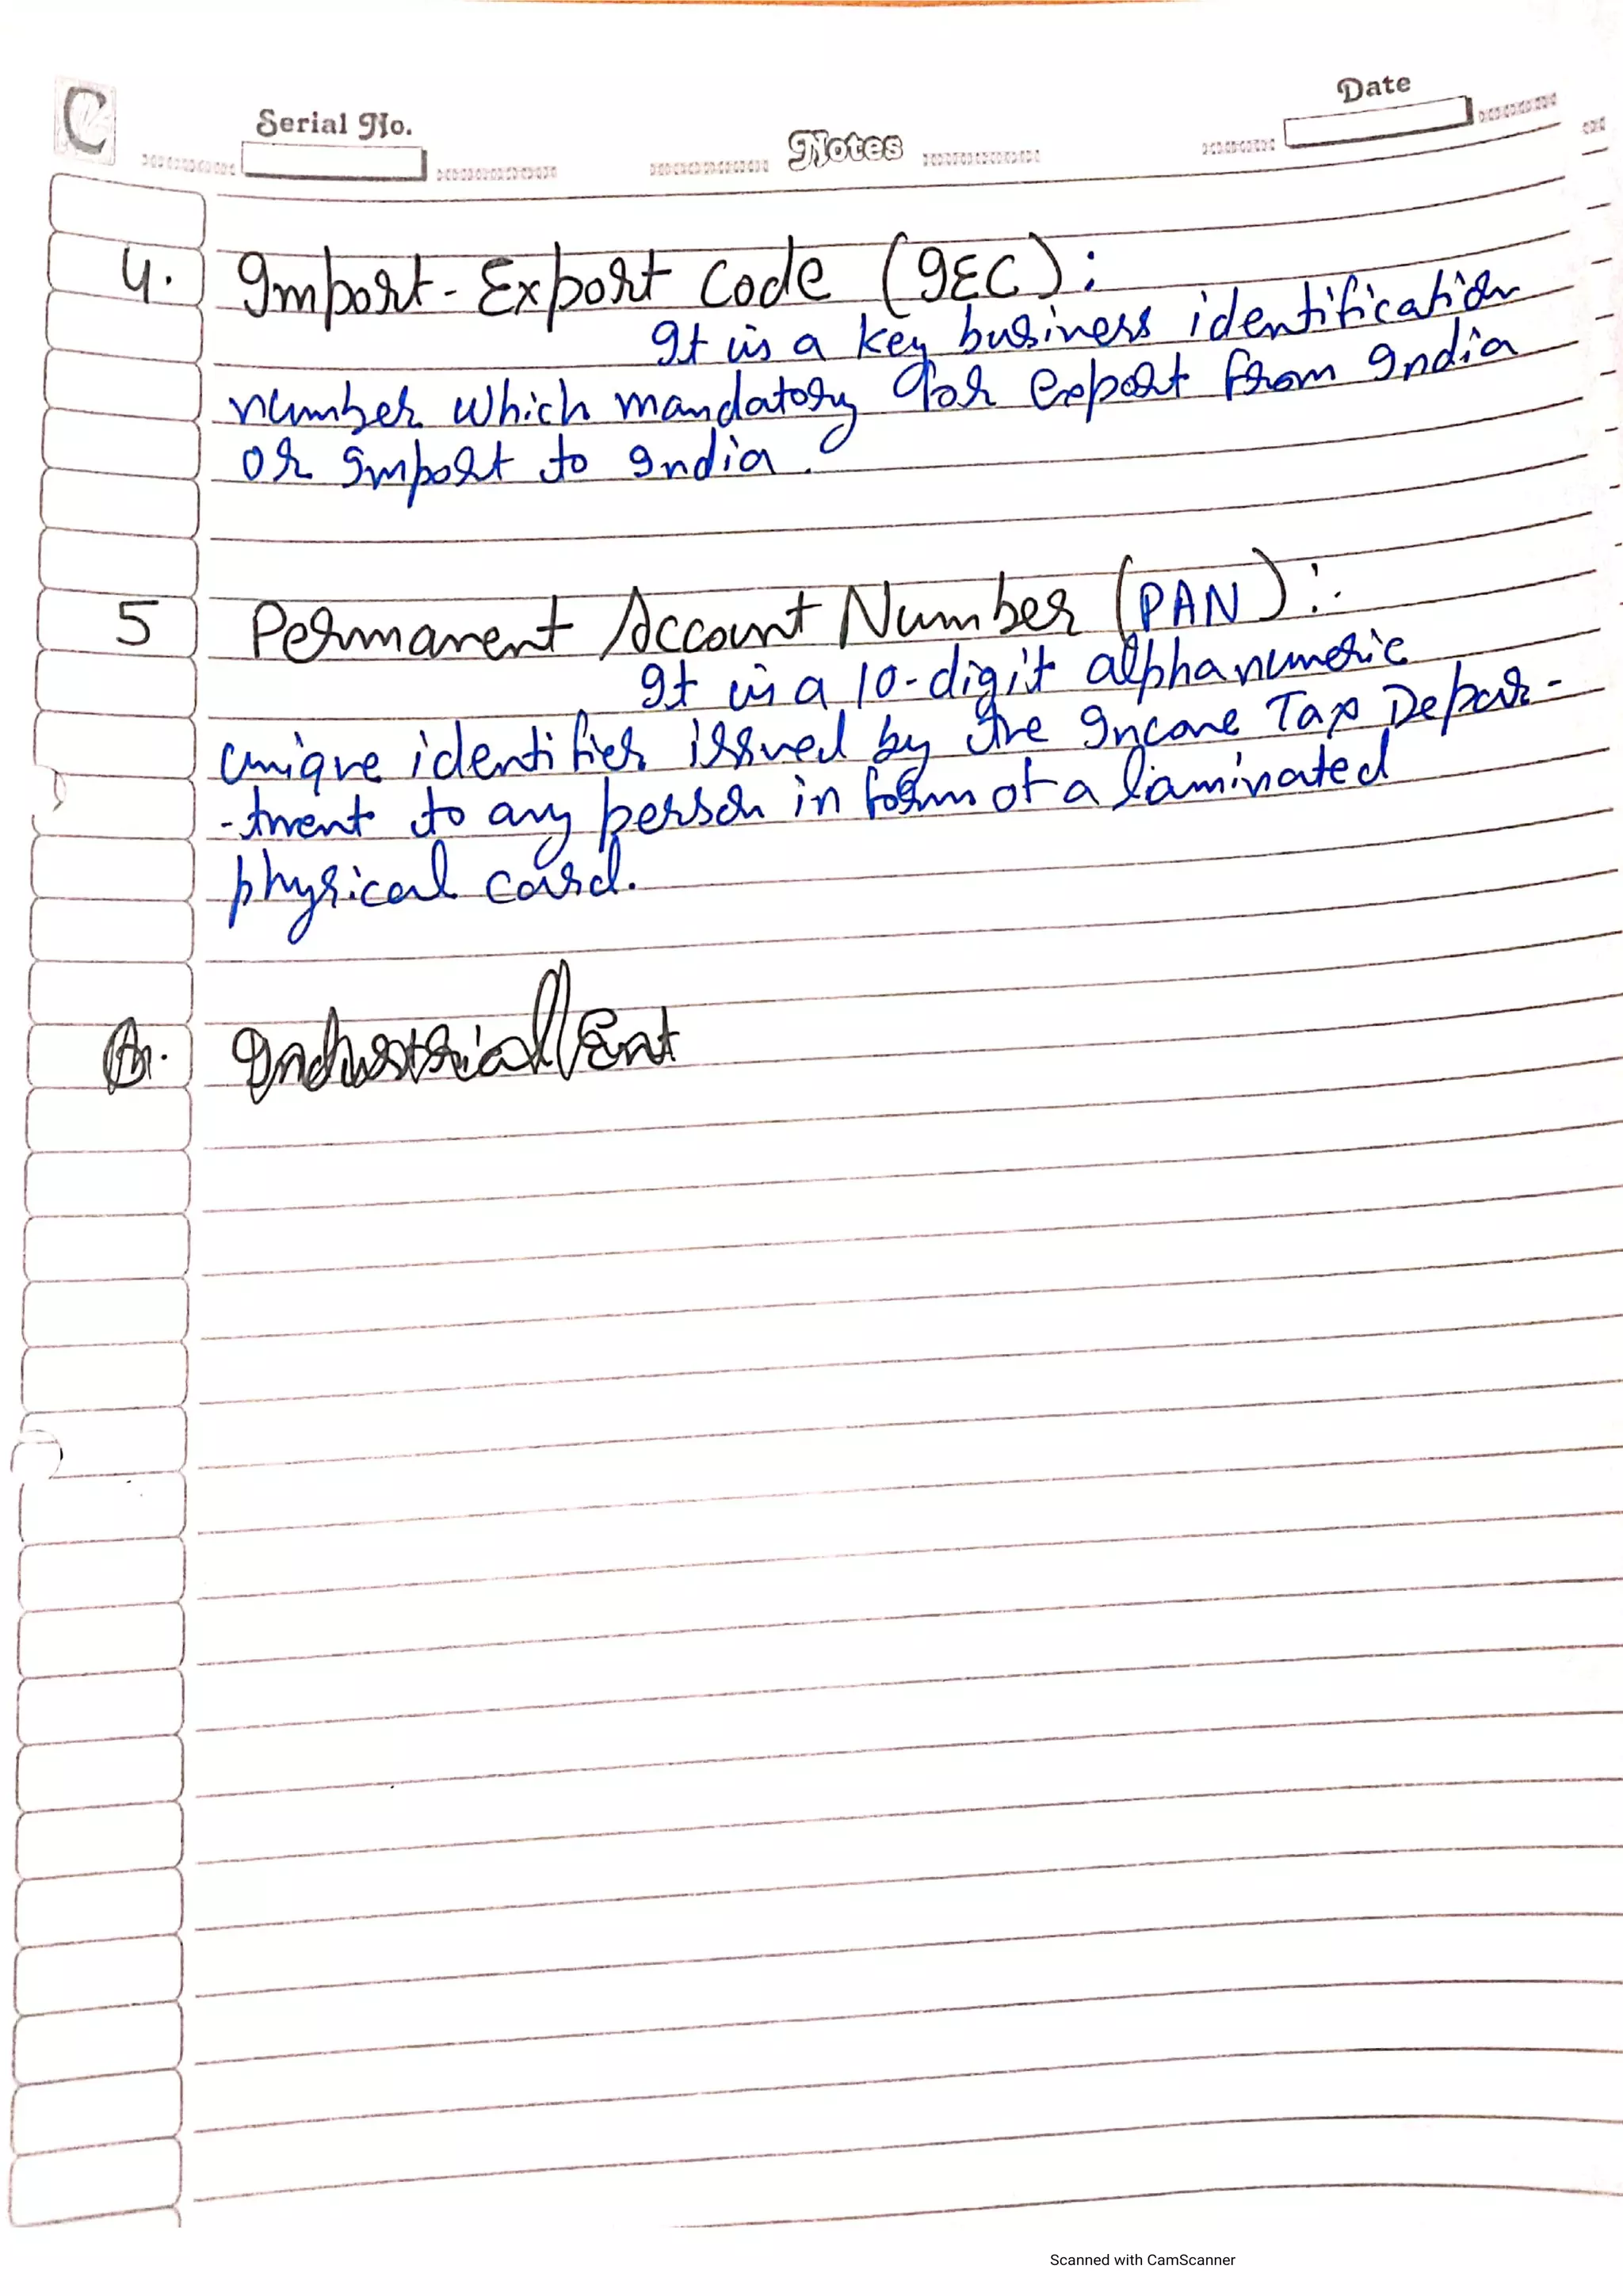 C
Serial No.
Notes
Date
4. Import-Export Code (IEC):
It is a key business identification
number which mandatory for export from India
or import to India.
5 Permanent Account Number (PAN):-
It is a 10-digit alphanumeric
unique identifier issued by the Income Tax Depar-
-tment to any person in form of a laminated
physical card.
Industrial Ent
Scanned with CamScanner